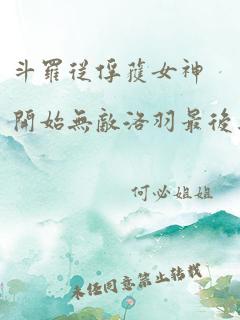 斗羅從俘獲女神
開始無敵洛羽最後
何必姐姐
未经同意禁止转载